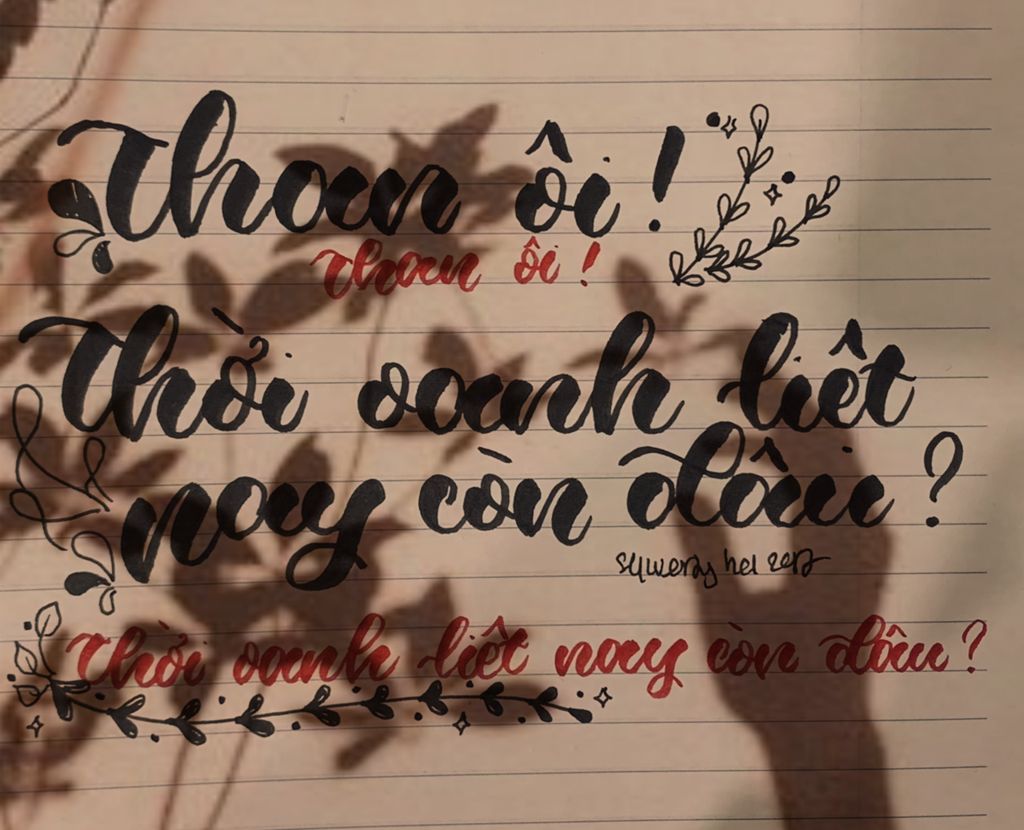 Than ôi!
Than ôi!
Thời oanh liệt
nay còn đâu?
Thời oanh liệt nay còn đâu?